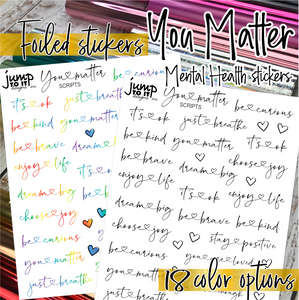 Foiled stickers
You Matter
Mental Health stickers
jump
TO IT!
You matter
SCRIPTS
be curious
it's ok
just breathe
be kind
you matter
be brave
enjoy life
it's ok
dream big
be kind
choose joy
be brave
be curious
you matter
just breathe
jump
TO IT!
You matter
SCRIPTS
be curious
it's ok
just breathe
be kind
you matter
be brave
choose joy
enjoy life
dream big
it's ok
be kind
dream big
be brave
choose joy
stay positive
be curious
you matter
you're loved
just breathe
18 color options